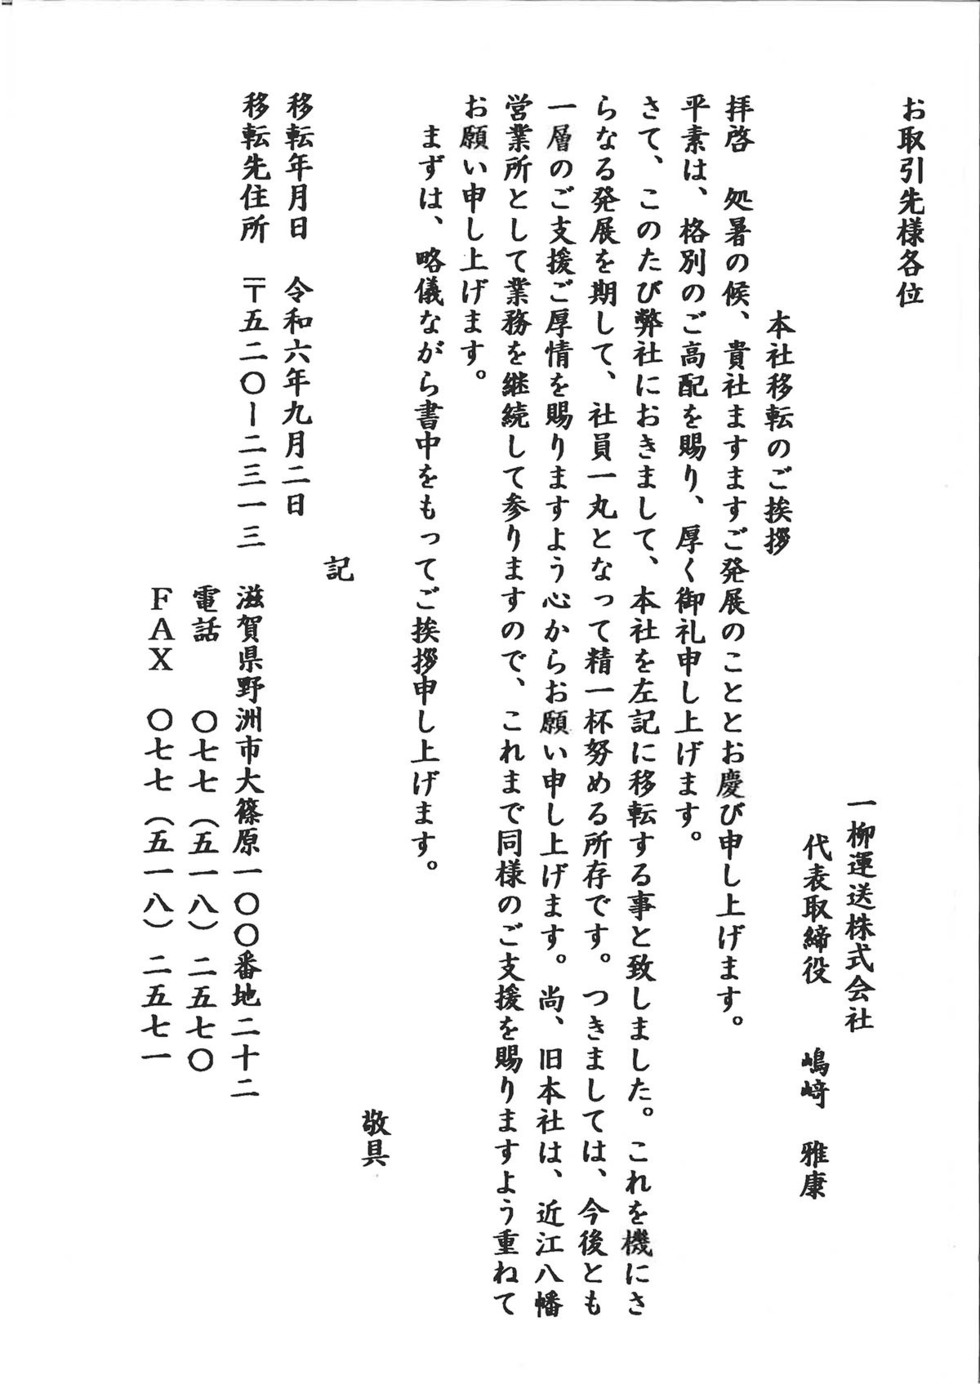 お取引先様各位
一柳運送株式会社
代表取締役　嶋﨑　雅康
本社移転のご挨拶
拝啓　処暑の候、貴社ますますご発展のこととお慶び申し上げます。
平素は、格別のご高配を賜り、厚く御礼申し上げます。
さて、このたび弊社におきまして、本社を左記に移転する事と致しました。これを機にさ
らなる発展を期して、社員一丸となって精一杯努める所存です。つきましては、今後とも
一層のご支援ご厚情を賜りますよう心からお願い申し上げます。尚、旧本社は、近江八幡
営業所として業務を継続して参りますので、これまで同様のご支援を賜りますよう重ねて
お願い申し上げます。
まずは、略儀ながら書中をもってご挨拶申し上げます。
敬具
記
移転年月日　令和六年九月二日
移転先住所　〒五二〇ー二三一三
滋賀県野洲市大篠原一〇〇番地二十二
電話　〇七七（五一八）二五七〇
ＦＡＸ　〇七七（五一八）二五七一